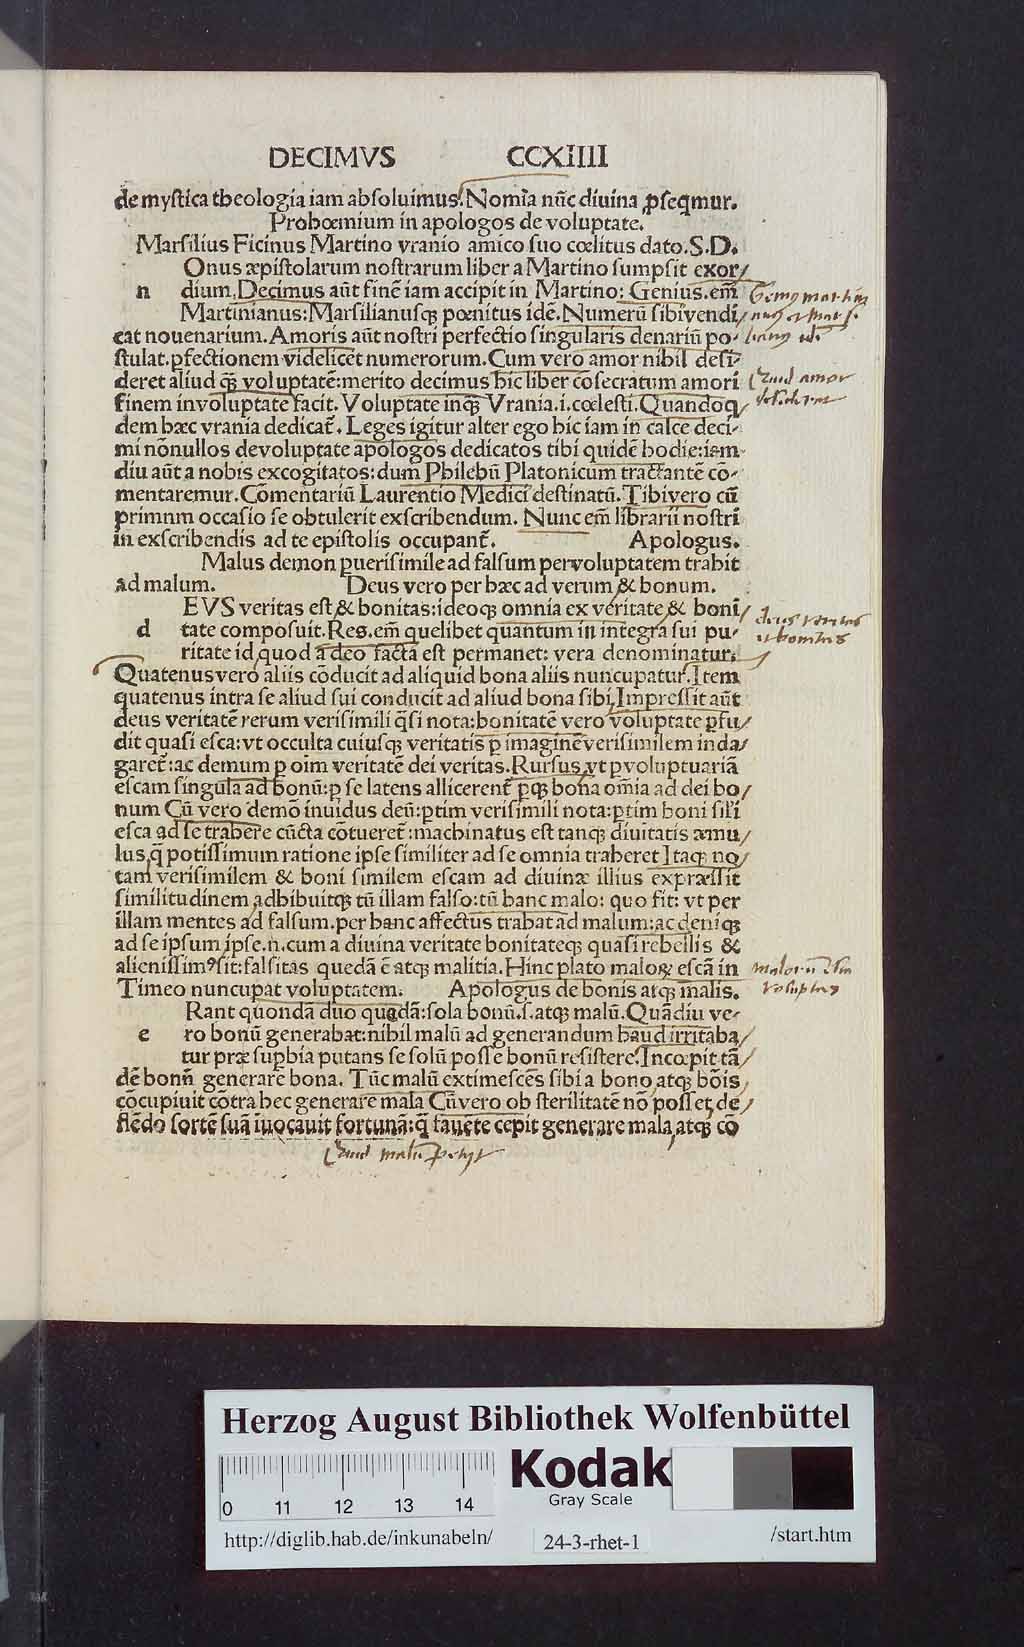 DECIMVS CCXIIII
de mystica theologia iam absoluimus. Nomīa nūc diuina ꝓseq̄mur.
Prohœmium in apologos de voluptate.
Marsilius Ficinus Martino vranio amico suo cœlitus dato. S.D.
Onus æpistolarum nostrarum liber a Martino sumpsit exor/
n dium, Decimus aūt finē iam accipit in Martino: Genius. em̄
Martinianus: Marsilianusqꝫ pœnitus idē. Numerū sibi vendi/
cat nouenarium. Amoris aūt nostri perfectio singularis denariū po-
stulat. ꝑfectionem videlicet numerorum. Cum vero amor nihil desi-
deret aliud qꝫ̄ voluptatē: merito decimus hic liber cōsecratum amori
finem involuptate facit. Voluptate inqꝫ̄ Vrania. i. cœlesti. Quandoq/
dem hæc vrania dedicat̄. Leges igitur alter ego hic iam in calce deci-
mi nōnullos de voluptate apologos dedicatos tibi quidē hodie: iam
diu aūt a nobis excogitatos: dum Philebū Platonicum tractante cō-
mentaremur. Cōmentariū Laurentio Medici destinatū. Tibi vero cū
primnm occasio se obtulerit exscribendum. Nunc em̄ librarii nostri
in exscribendis ad te epistolis occupant̄. Apologus.
Malus demon puerisimile ad falsum per voluptatem trahit
ad malum. Deus vero per hæc ad verum & bonum.
EVS veritas est & bonitas: ideoqꝫ omnia ex veritate & boni/
d tate composuit. Res. em̄ quelibet quantum in integra sui pu-
ritate id quod a deo facta est permanet: vera denominatur.
Quatenus vero aliis cōducit ad aliquid bona aliis nuncupatur. Item
quatenus intra se aliud sui conducit ad aliud bona sibi, Impressit aūt
deus veritatē rerum verisimili q̄si nota: bonitatē vero voluptate ꝑfu/
dit quasi esca: vt occulta cuiusqꝫ veritatis ꝑ imaginē verisimilem inda/
garet̄: ac demum ꝑ oim veritatē dei veritas. Rursus vt ꝑvoluptuariā
escam singula ad bonū: ꝑ se latens allicerent̄ ꝑqꝫ bona om̄ia ad dei bo/
num Cū vero demō inuidus deū: ꝑtim verisimili nota: ꝑtim boni sili
esca ad se trahere cūcta cōtueret̄: machinatus est tanqꝫ diuitatis æmu/
lus, q̄ potissimum ratione ipse similiter ad se omnia traheret Itaqꝫ no/
tam verisimilem & boni similem escam ad diuinæ illius expræssit
similitudinem adhibuitqꝫ tū illam falso: tū hanc malo: quo fit: vt per
illam mentes ad falsum. per hanc affectus trahat ad malum: ac deniqꝫ
ad se ipsum ipse. n. cum a diuina veritate bonitateqꝫ quasi rebellis &
alienissimꝰ sit: falsitas quedā ē atqꝫ malitia. Hinc plato maloꝝ escā in
Timeo nuncupat voluptatem. Apologus de bonis atqꝫ malis.
Rant quondā duo quedā: sola bonū. s. atqꝫ malū. Quādiu ve-
e ro bonū generabat: nihil malū ad generandum haud irritaba/
tur præ supbia putans se solū posse bonū resistere. Incœpit tā/
dē bonū generare bona. Tūc malū extimescēs sibi a bono, atqꝫ bōis,
cōcupiuit cōtra hec generare mala Cū vero ob sterilitatē nō posset, de/
flēdo sortē suā īuocauit fortunā: q̄ fauēte cepit generare mala, atqꝫ cō
Genius martin
Quid amor
deus veritas
et bonitas
voluptas
Quid malū
Herzog August Bibliothek Wolfenbüttel
0 11 12 13 14
Kodak
Gray Scale
http://diglib.hab.de/inkunabeln/
24-3-rhet-1
/start.htm